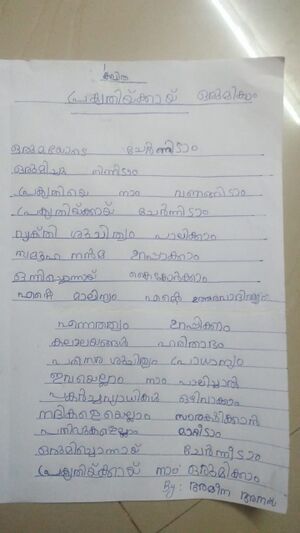 കവിത
പ്രകൃതിയ്ക്കായ് ഒരുമിക്കാം
ഒരുമയോടെ ചേർന്നിടാം
ഒരുമിച്ചു നിന്നിടാം
പ്രകൃതിയെ നാം വണങ്ങിടാം
പ്രകൃതിയ്ക്കായ് ചേർന്നിടാം
വ്യക്തി ശുചിത്വം പാലിക്കാം
സമൂഹ നന്മ ഉറപ്പാക്കാം
ഒന്നിച്ചൊന്നായ് കൈകോർക്കാം
എന്റെ മാലിന്യം എന്റെ ഉത്തരവാദിത്വം
എന്നതത്വം ഉറപ്പിക്കാം
കലാലയങ്ങൾ ഹരിതാഭം
പരിസര ശുചിത്വം പ്രാധാന്യം
ഇവയെല്ലാം നാം പാലിച്ചാൽ
പകർച്ചവ്യാധികൾ ഒഴിവാക്കാം
നദികളെയെല്ലാം സംരക്ഷിക്കാൻ
പതിവുകളെല്ലാം മാറ്റിടാം
ഒരുമിച്ചൊന്നായ് ചേർന്നീടാം
പ്രകൃതിയ്ക്കായ് നാം ഒരുമിക്കാം
By: അമീന